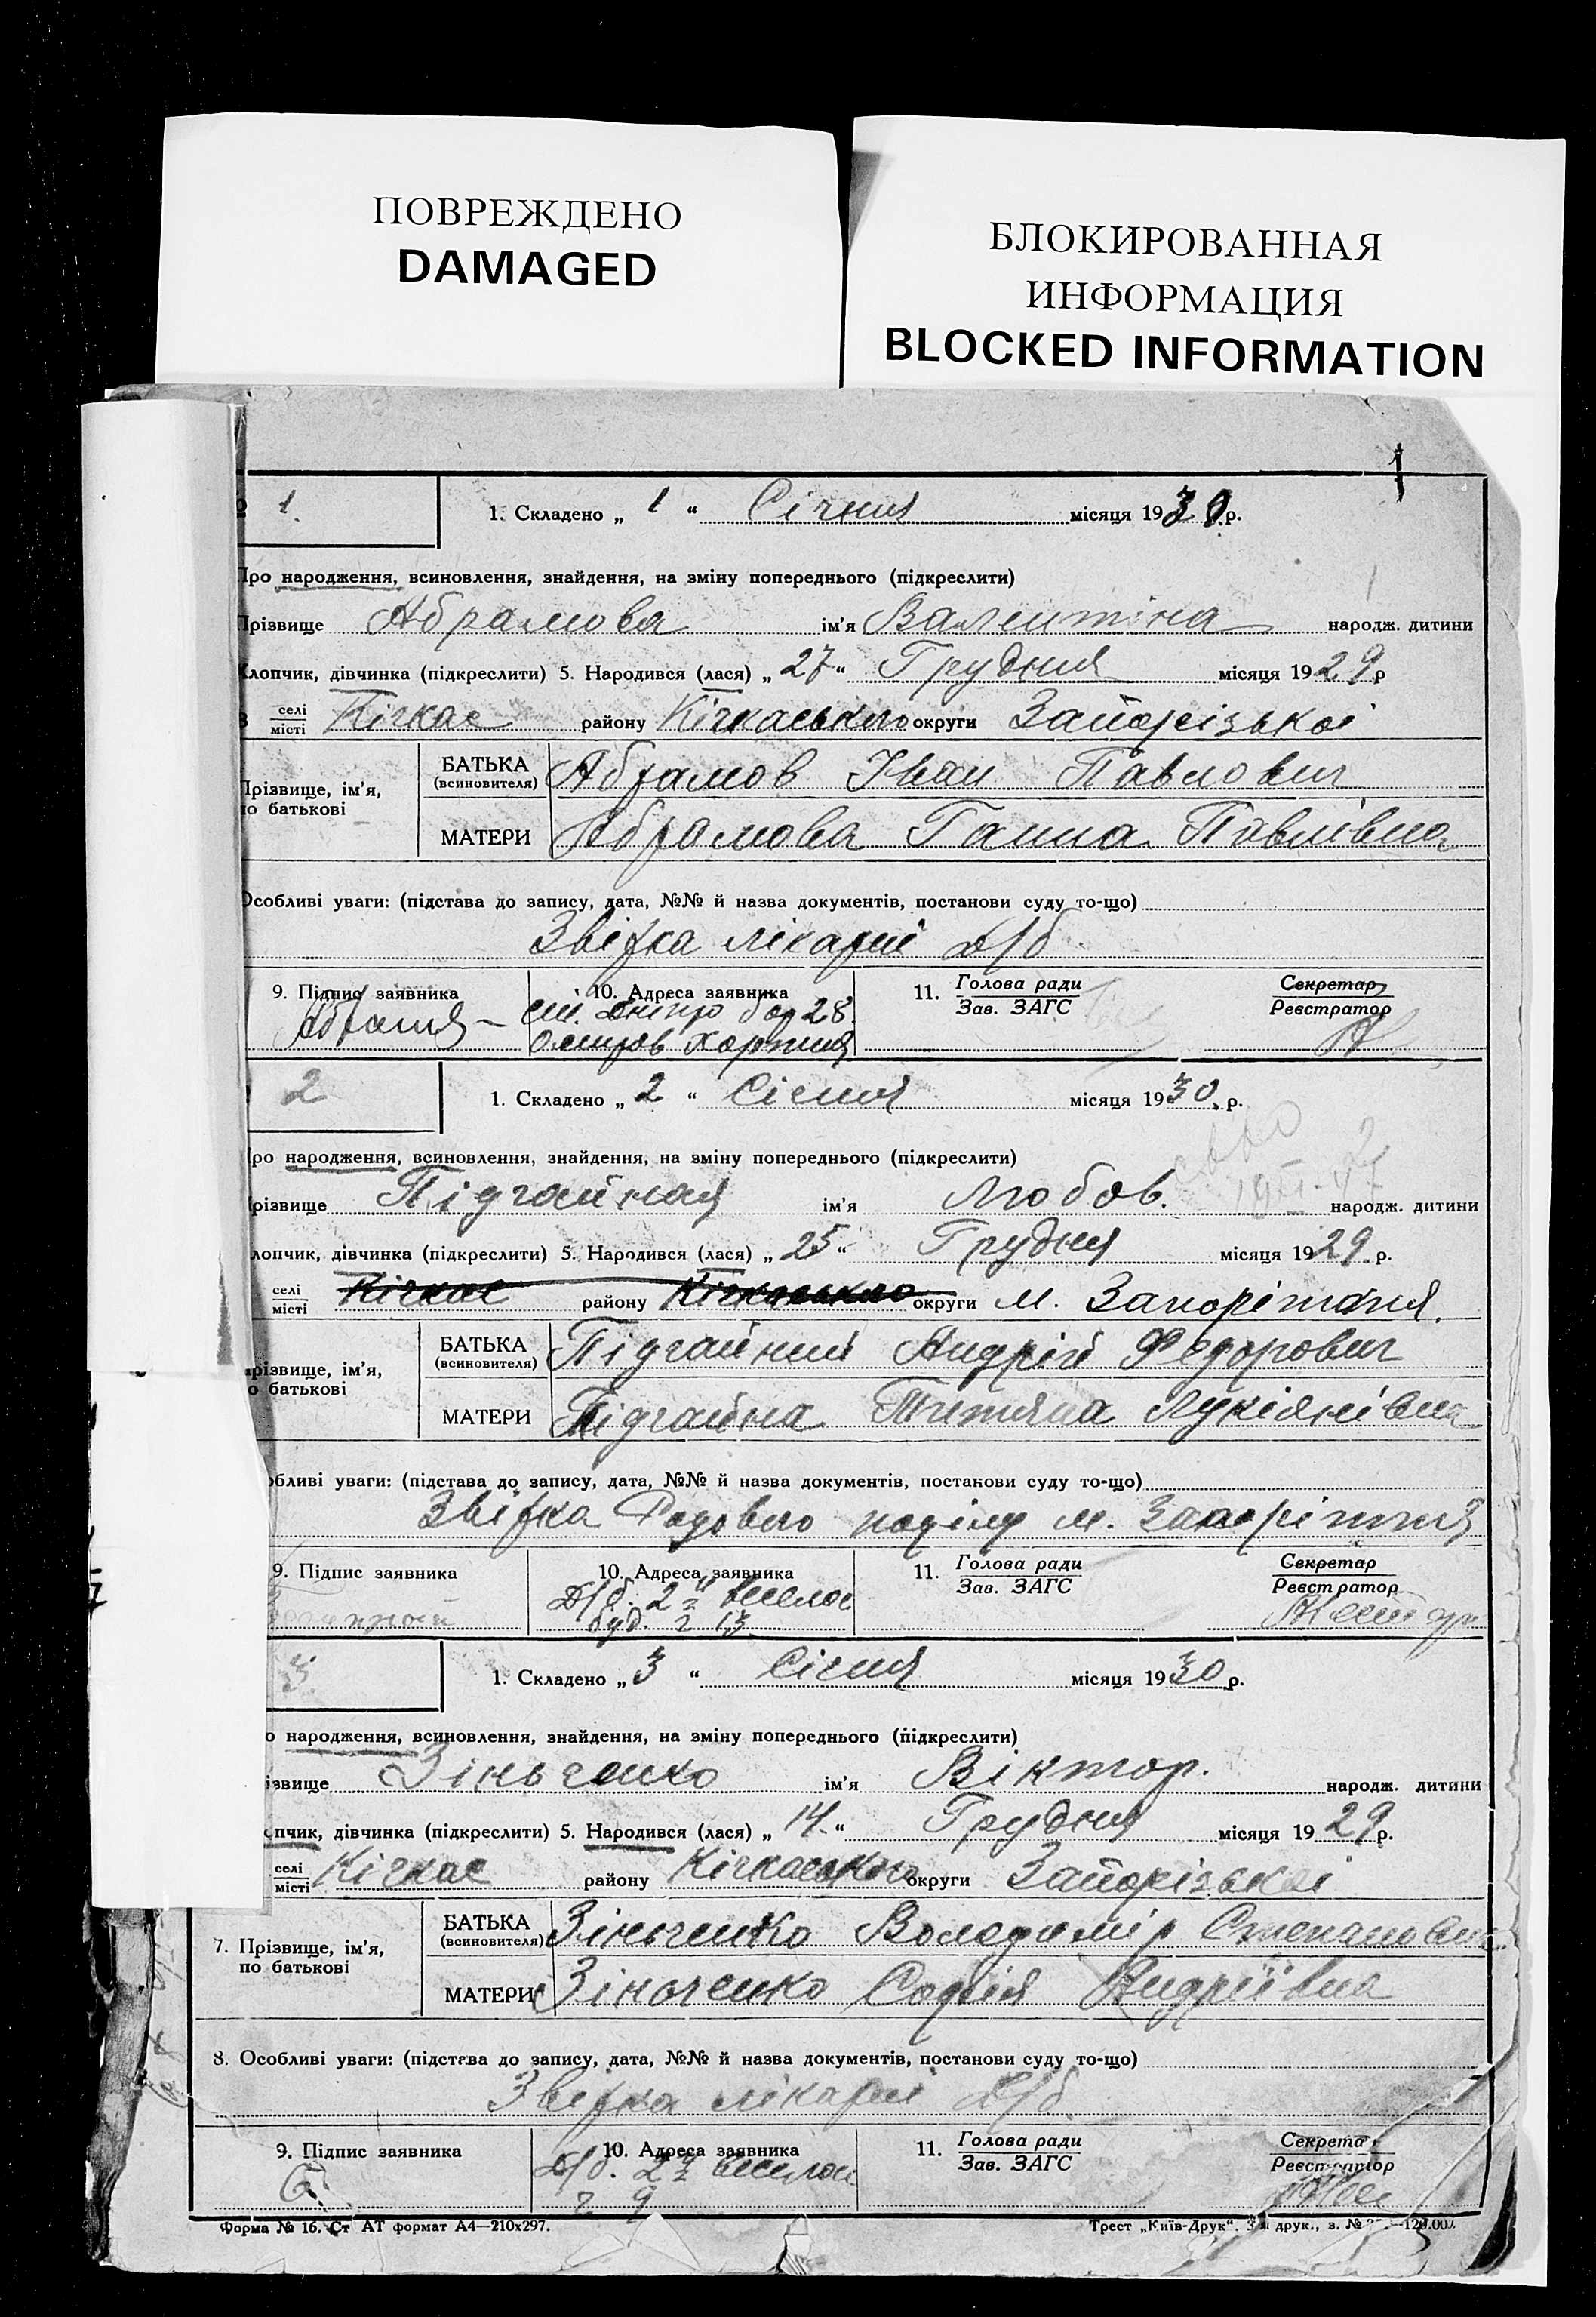 ПОВРЕЖДЕНО
DAMAGED
БЛОКИРОВАННАЯ
ИНФОРМАЦИЯ
BLOCKED INFORMATION
1
1.
1. Складено „ 1 “ Січня місяця 1930 р.
Про народження, всиновлення, знайдення, на зміну попереднього (підкреслити)
Прізвище Абрамова ім'я Валентіна народж. дитини
Хлопчик, дівчинка (підкреслити) 5. Народився (лася) „ 27 “ Грудня місяця 1929 р
в селі місті Кічкас району Кічкаського округи Запорізької
Прізвище, ім'я, по батькові
БАТЬКА (всиновителя) Абрамов Іван Павлович
МАТЕРИ Абрамова Ганна Павлівна
Особливі уваги: (підстава до запису, дата, №№ й назва документів, постанови суду то-що)
Звістка лікарні Д/б
9. Підпис заявника 10. Адреса заявника 11. Голова ради Зав. ЗАГС Секретар Реєстратор
Дніпро бар 28
2
1. Складено „ 2 “ Січня місяця 1930 р.
ро народження, всиновлення, знайдення, на зміну попереднього (підкреслити)
різвище Підгайная ім'я Любов. народж. дитини
лопчик, дівчинка (підкреслити) 5. Народився (лася) „ 25 “ Грудня місяця 1929 р.
селі місті Кічкас району Кічкаського округи м. Запоріжжя.
різвище, ім'я, о батькові
БАТЬКА (всиновителя) Підгайний Андрій Федорович
МАТЕРИ Підгайна Титяна Лукіянівна
обливі уваги: (підстава до запису, дата, №№ й назва документів, постанови суду то-що)
Звістка м. Запоріжжя
9. Підпис заявника 10. Адреса заявника 11. Голова ради Зав. ЗАГС Секретар Реєстратор
Д/б. 2 веселої
буд. 2 13
3
1. Складено „ 3 “ Січня місяця 1930 р.
о народження, всиновлення, знайдення, на зміну попереднього (підкреслити)
ізвище Зіньченко ім'я Віктор. народж. дитини
пчик, дівчинка (підкреслити) 5. Народився (лася) „ 14 “ Грудня місяця 1929 р.
селі місті Кічкас району Кічкаського округи Запорізької
7. Прізвище, ім'я, по батькові
БАТЬКА (всиновителя) Зіньченко Володимір Степанович
МАТЕРИ Зіньченко Софія Андріївна
8. Особливі уваги: (підстава до запису, дата, №№ й назва документів, постанови суду то-що)
Звістка лікарні Д/б
9. Підпис заявника 10. Адреса заявника 11. Голова ради Зав. ЗАГС Секретар Реєстратор
Д/б. 2 веселої
2 9
Форма № 16. Ст АТ формат А4—210х297.
Трест „Київ-Друк“. друк., з. №